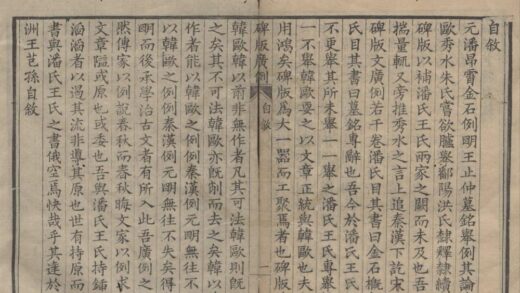 自敘
元潘昂霄金石例明王止仲墓銘舉例其論
歐秀水朱氏嘗欲臚舉鄱陽洪氏隸釋隸續
碑版以補潘氏王氏兩家之闕而未及也吾
揣量輒又旁推秀水之言上追秦漢下訖宋
碑版文廣例若干卷潘氏目其書曰金石槪
氏目其書曰墓銘專辭也吾今於潘氏王氏
不更舉其所未舉一一舉之潘氏王氏專
一不舉韓歐要之以文章正統與韓歐也夫
用鴻矣碑版為大一器而工聚焉者也碑版
碑版廣例
自敘
一
韓歐韓以前非無作者凡其可法韓則旣
之矣其不可法韓歐亦旣削而去之矣韓以
作者能以韓歐之例例秦漢例元明無往不
以韓歐之例例秦漢例元明無往不失矣得
明而後承學治古文者有所入此吾廣例之
然傳家以例說春秋而春秋晦文家以例求
文章隘或原也或委也吾與潘氏王氏持鍤
滔滔者以過其流非導其原也世有持原而
書與潘氏王氏之書俄空焉快哉乎其達於
洲王芑孫自敘